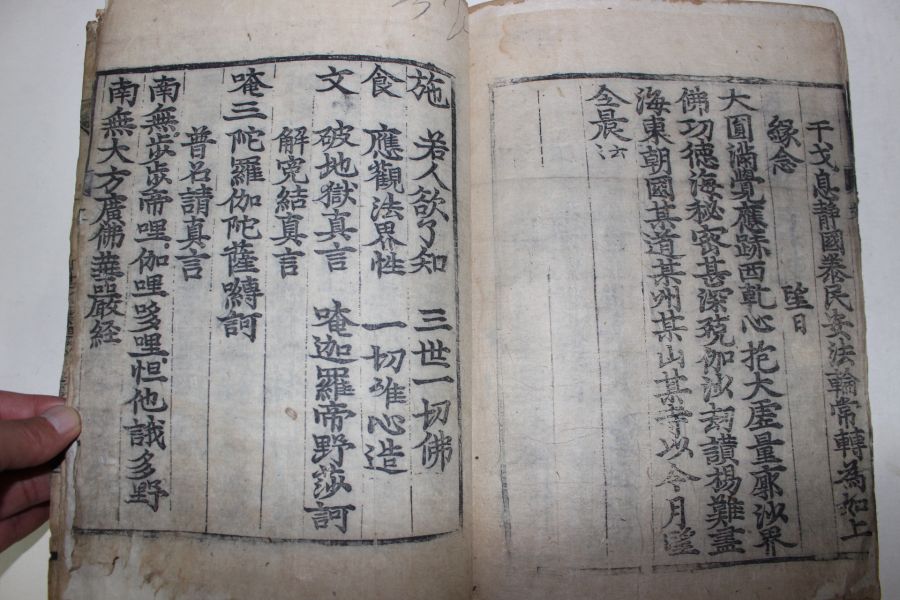 干戈息静國泰民安法輪常轉為如上
緣念 望日
大圓滿覺應跡西乾心抱大虛量廓沙界
佛功德海秘密甚深殑伽沙劫讃揚難盡
海東朝國某道某州某山某寺以今月望
今晨
施 若人欲了知 三世一切佛
食 應觀法界性 一切唯心造
文 破地獄真言 唵迦羅帝野莎訶
解寃結真言
唵三陀羅伽陀薩嚩訶
普名請真言
南無歩歩帝哩伽哩哆哩怛他誐多野
南無大方廣佛華嚴経